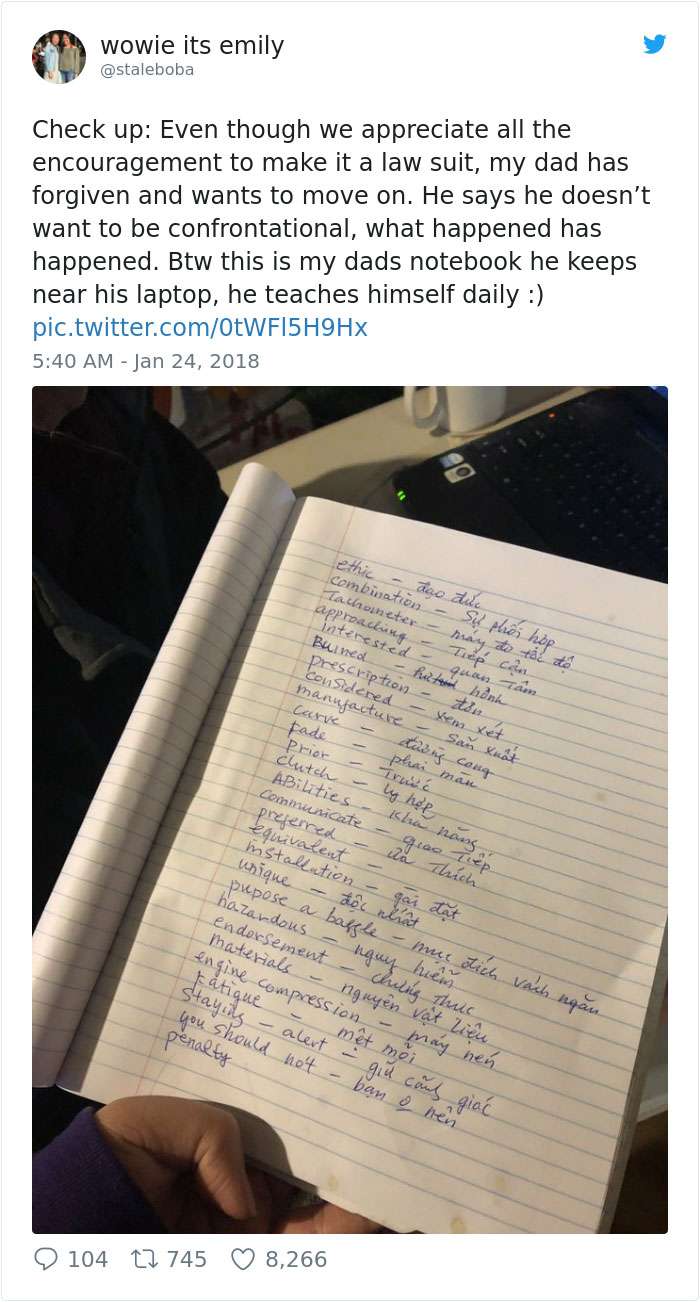 wowie its emily
@staleboba
Check up: Even though we appreciate all the
encouragement to make it a law suit, my dad has
forgiven and wants to move on. He says he doesn’t
want to be confrontational, what happened has
happened. Btw this is my dads notebook he keeps
near his laptop, he teaches himself daily :)
pic.twitter.com/0tWFl5H9Hx
5:40 AM - Jan 24, 2018
ethic - đạo đức
combination - Sự phối hợp
Tachometer - máy đo tốc độ
approaching - Tiếp cận
interested - quan Tâm
Buined - hỏnh
prescription - đơn
considered - xem xét
manufacture - Sản xuất
curve - đường cong
fade - phai màn
Prior - Trước
clutch - ly hợp
ABilities - Khả năng
communicate - giao Tiếp
preferred - ưa Thích
equivalent -
installation - gài đặt
unique - độc nhất
pupose a baffle - mục đích vách ngăn
hazardous - nguy hiểm
endorsement - chứng Thực
materials - nguyên vật liệu
engine compression - máy nén
Fatigue - mệt mỏi
Staying - alert - giữ cảnh giác
you should not - bạn o nên
penalty
104 745 8,266